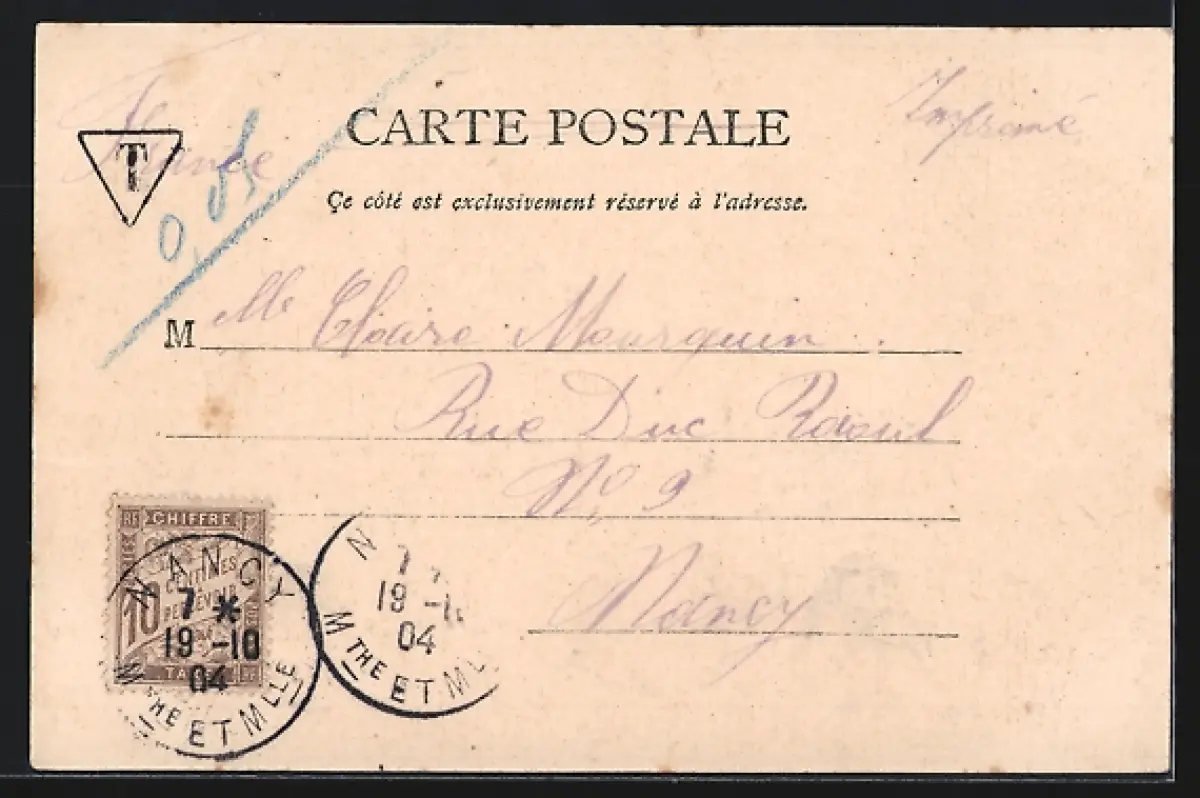 France
T
0,05
CARTE POSTALE
Imprimé
Ce côté est exclusivement réservé à l'adresse.
M elle Claire Mourquin.
Rue Duc Raoul
No 9
Nancy
RF CHIFFRE
10 CENTIMES
PERCEVOIR
NANCY
7 *
19 -10
04
M THE ET M LLE
N
7
19 -1
04
M THE ET M